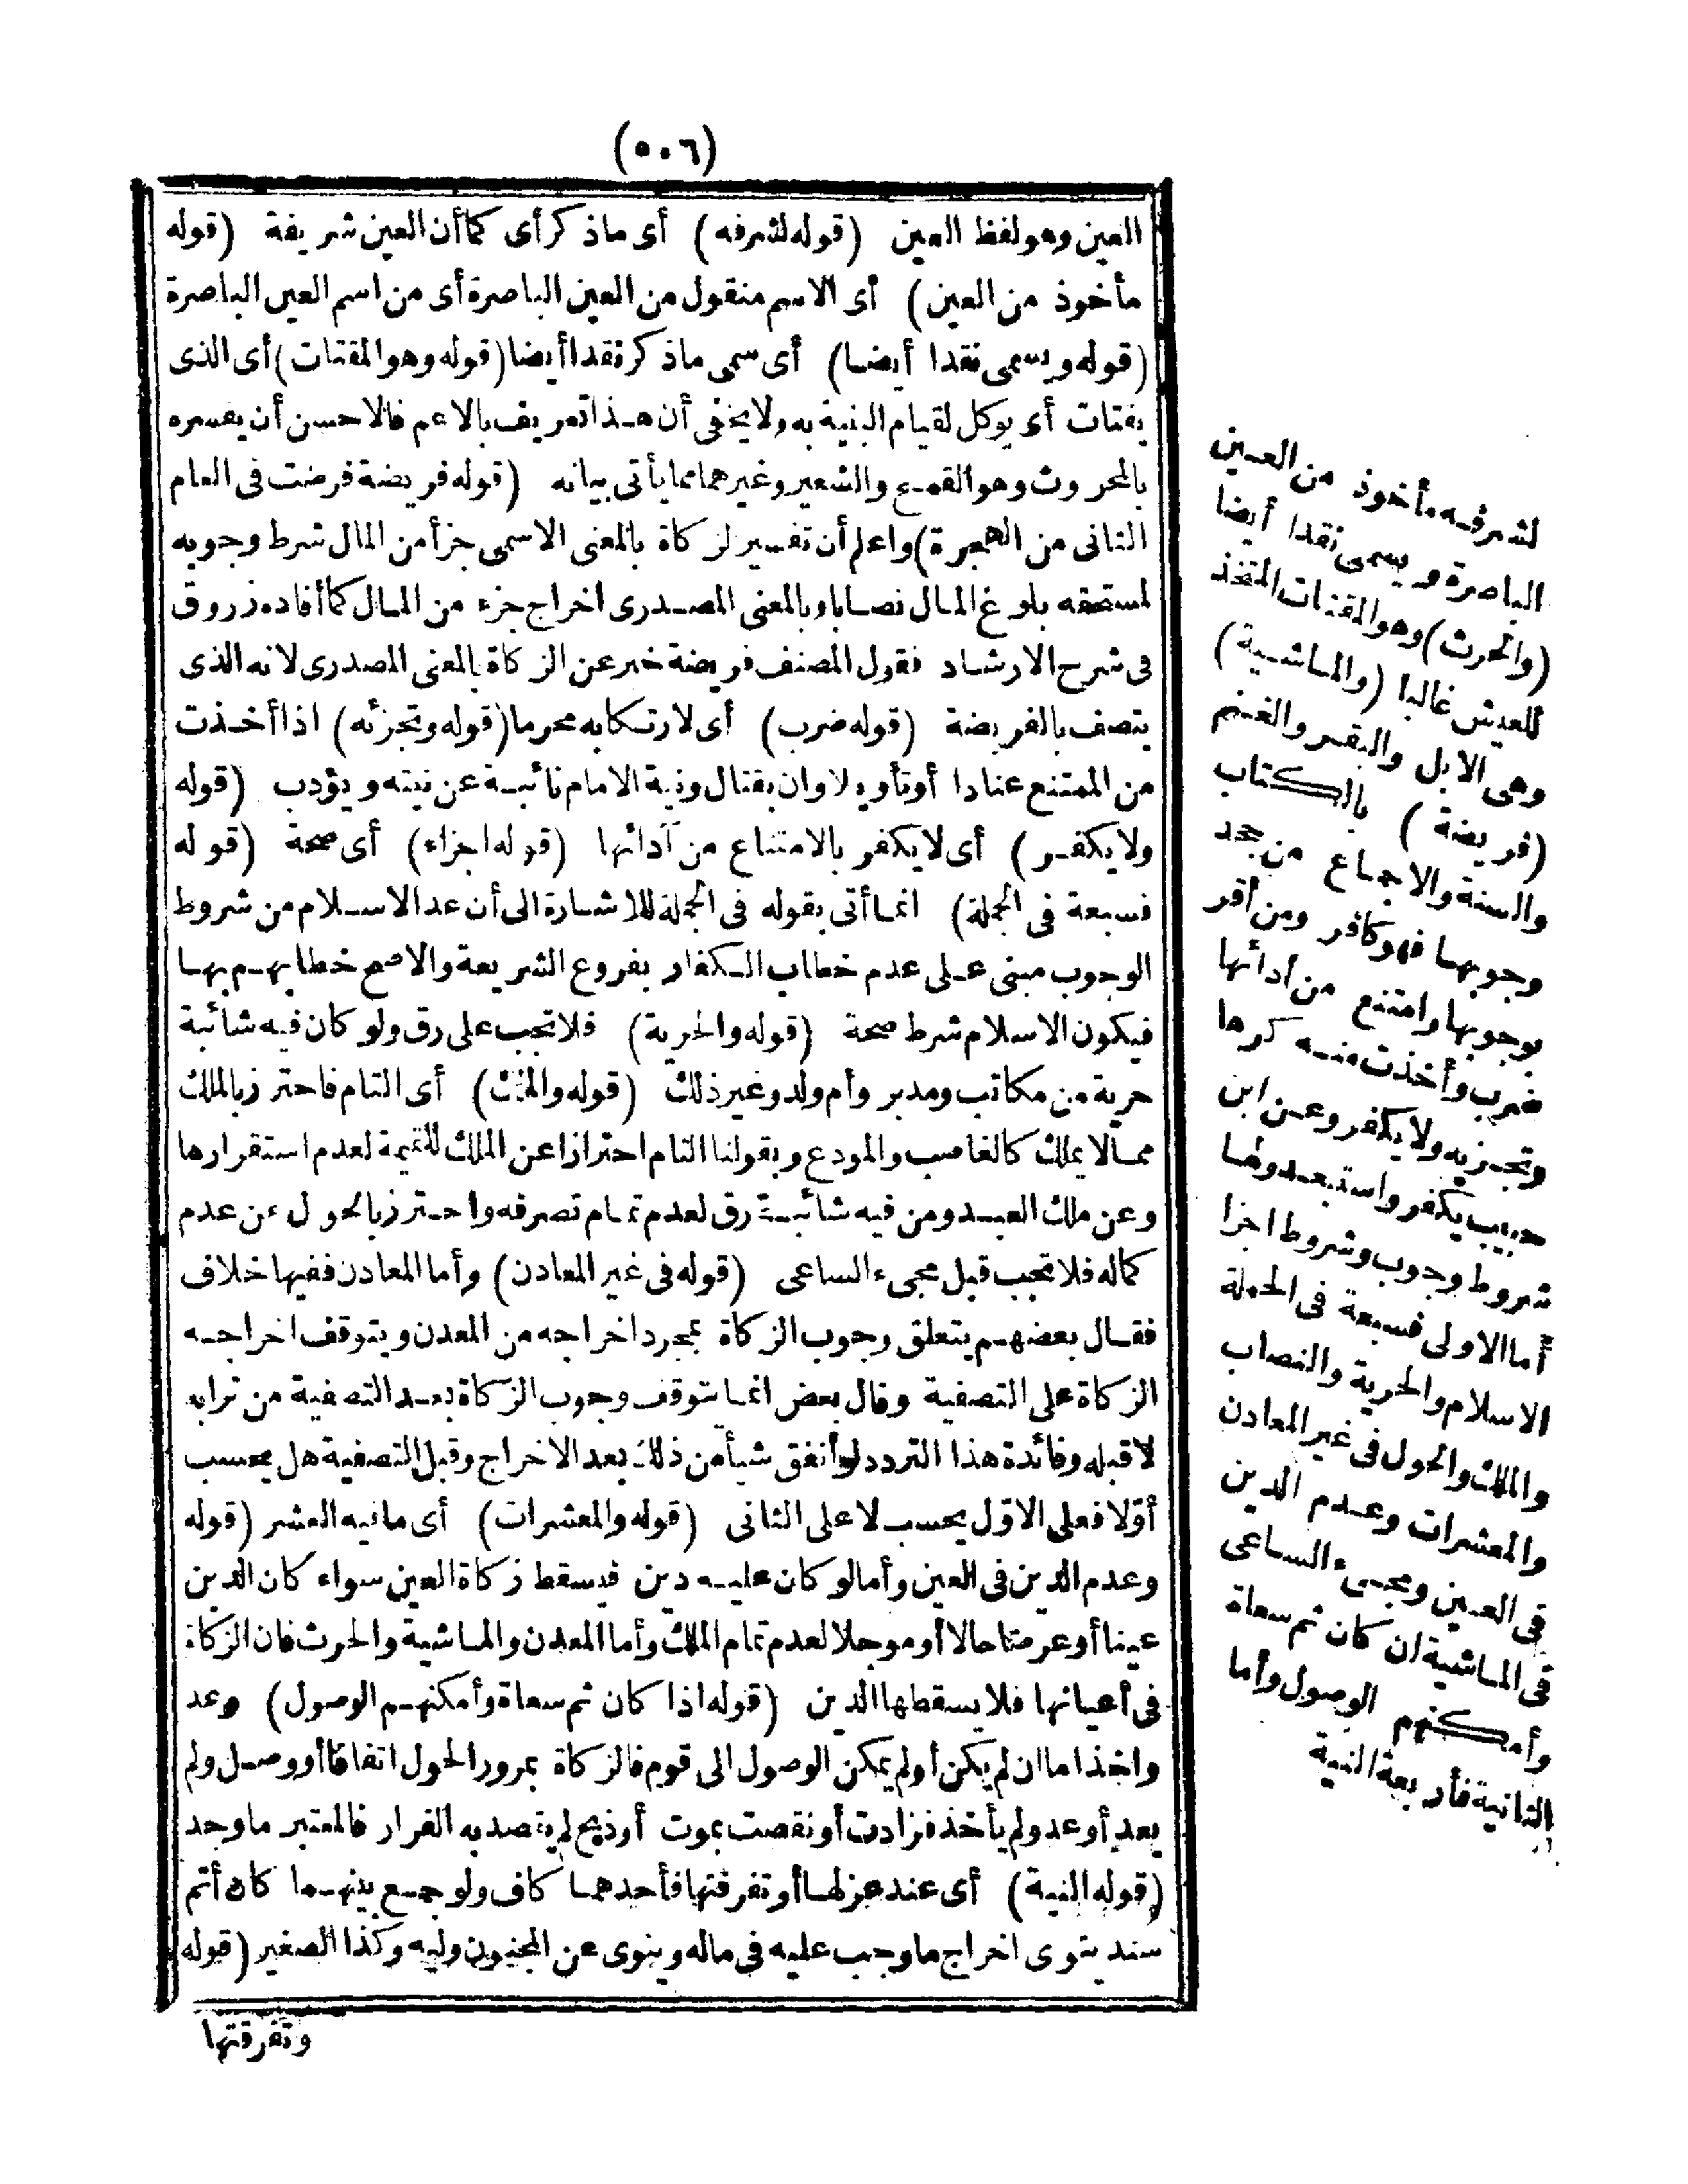 (٥٠٦)
العين وهو لفظ العين (قوله لشرفه) أى ماذكر أى كما أن العين شريفة (قوله
مأخوذ من العين) أى الاسم منقول من العين الباصرة أى من اسم العين الباصرة
(قوله ويسمى نقدا أيضا) أى سمى ماذكر نقدا أيضا (قوله وهو المقتات) أى الذى
يقتات أى يوكل لقيام البنية به ولا يخفى أن هذا تعريف بالاعم فالاحسن أن يفسره
بالمحروث وهو القمع والشعير وغيرهما مما يأتى بيانه (قوله فريضة فرضت فى العام
الثانى من الهجرة) واعلم أن تفسير لزكاة بالمعنى الاسمى جزأ من المال شرط وجوبه
لمستحقه بلوغ المال نصابا وبالمعنى المصدرى اخراج جزء من المال كما أفاده زروق
فى شرح الارشاد فقول المصنف فريضة خبر عن الزكاة بالمعنى المصدرى لانه الذى
يتصف بالفريضة (قوله ضرب) أى لارتكابه محرما (قوله وتجزئه) اذا أخذت
من الممتنع عنادا أو تأويلا وان بقتال ونية الامام نائبة عن نيته ويؤدب (قوله
ولا يكفر) أى لا يكفر بالامتناع من آدائها (قوله اجزاء) أى صحة (قوله
فسبعة فى الجملة) انما أتى بقوله فى الجملة للاشارة الى أن عد الاسلام من شروط
الوجوب مبنى على عدم خطاب الكفار بفروع الشريعة والاصح خطابهم بها
فيكون الاسلام شرط صحة (قوله والحرية) فلا تجب على رق ولو كان فيه شائبة
حرية من مكاتب ومدبر وأم ولد وغير ذلك (قوله والملك) أى التام فاحترز بالملك
مما لا يملك كالغاصب والمودع وبقولنا التام احترازا عن الملك للغنيمة لعدم استقرارها
وعن ملك العبد ومن فيه شائبة رق لعدم تمام تصرفه واحترز بالحول عن عدم
كماله فلا تجب قبل مجىء الساعى (قوله فى غير المعادن) وأما المعادن ففيها خلاف
فقال بعضهم يتعلق وجوب الزكاة بمجرد اخراجه من المعدن ويتوقف اخراجه
الزكاة على التصفية وقال بعض انما يتوقف وجوب الزكاة بعد التصفية من ترابه
لا قبله وفائدة هذا التردد لو أنفق شيأ من ذلك بعد الاخراج وقبل التصفية هل يحسب
أولا فعلى الاول يحسب لا على الثانى (قوله والمعشرات) أى ما فيه العشر (قوله
وعدم الدين فى العين وأما لو كان عليه دين فيسقط زكاة العين سواء كان الدين
عينا أو عرضا حالا أو موجلا لعدم تمام الملك وأما المعدن والماشية والحرث فان الزكاة
فى أعيانها فلا يسقطها الدين (قوله اذا كان ثم سعاة وأمكنهم الوصول) وعد
واخذ اما ان لم يكن أو لم يمكن الوصول الى قوم فالزكاة بمرور الحول اتفاقا أو وصل ولم
يعد أو عد ولم يأخذ فزادت أو نقصت بموت أو ذبح لم يقصد به الفرار فالمعتبر ما وجد
(قوله النية) أى عند عزلها أو تفرقتها فأحدهما كاف ولو جمع بينهما كان أتم
سند ينوى اخراج ما وجب عليه فى ماله وينوى عن المجنون وليه وكذا الصغير (قوله
وتفرقتها
لشرفه مأخوذ من العين
الباصرة ويسمى نقدا أيضا
(والحرث) وهو المقتات المتخذ
للعيش غالبا (والماشية)
وهى الابل والبقر والغنم
(فريضة) بالكتاب
والسنة والاجماع من جحد
وجوبها فهو كافر ومن أقر
بوجوبها وامتنع من أدائها
ضرب وأخذت منه كرها
وتجزيه ولا يكفر وعن ابن
حبيب يكفر واستبعد ولها
شروط وجوب وشروط اجزا
أما الاولى فسبعة فى الجملة
الاسلام والحرية والنصاب
والملك والحول فى غير المعادن
والمعشرات وعدم الدين
فى العين ومجىء الساعى
فى الماشية ان كان ثم سعاة
وأمكنهم الوصول وأما
الثانية فأربعة النية